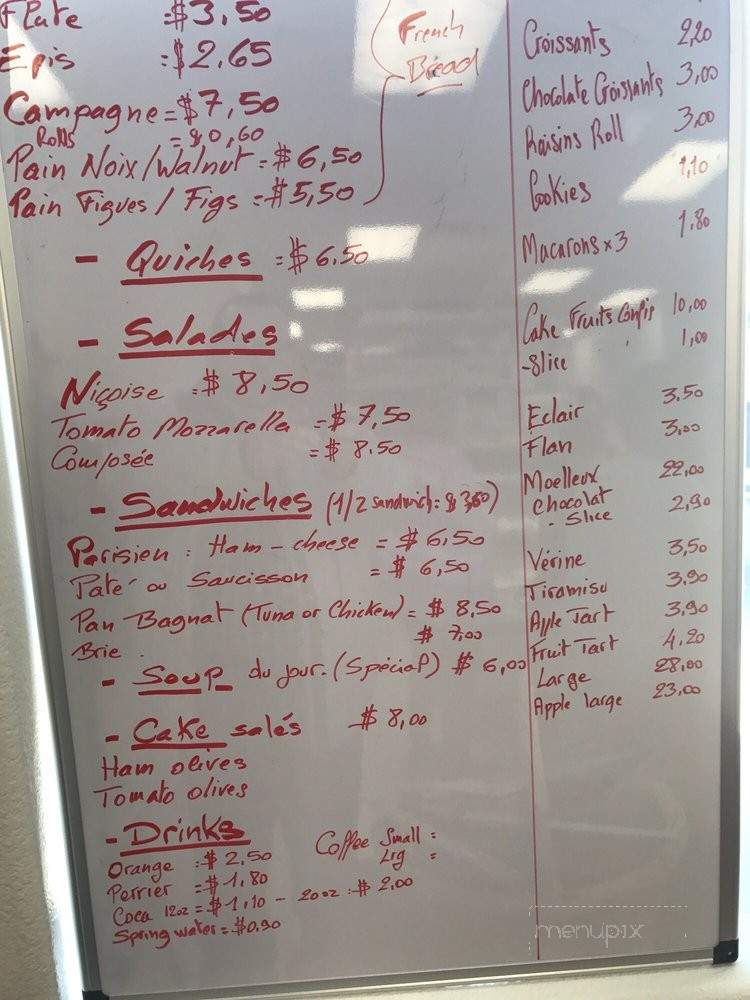 Flute = $3,50
Epis = $2,65
Campagne = $7,50
Rolls = $0,60
Pain Noix/Walnut = $6,50
Pain Figues / Figs = $5,50
French
Bread
- Quiches = $6.50
- Salades
Niçoise = $8,50
Tomato Mozzarella = $7,50
Composée = $8.50
- Sandwiches (1/2 sandwich: $3,60)
Parisien : Ham - cheese = $6,50
Paté ou Saucisson = $6,50
Pan Bagnat (Tuna or Chicken) = $8,50
Brie . $7,00
- Soup du jour. (Spécial) $6,00
- Cake salés $8,00
Ham olives
Tomato olives
- Drinks
Orange : $2,50
Perrier = $1,80
Coca 12oz = $1,10 - 20oz : $2,00
Spring water = $0,90
Coffee Small :
Lrg =
Croissants 2,20
Chocolate Croissants 3,00
Raisins Roll 3,00
Cookies 1,10
Macarons x 3 1,80
Cake Fruits Confis 10,00
-Slice 1,00
Eclair 3.50
Flan 3,00
Moelleux 22,00
Chocolat
- Slice 2,90
Vérine 3,50
Tiramisu 3,90
Apple Tart 3,90
Fruit Tart 4,20
Large 28,00
Apple large 23,00
menupix